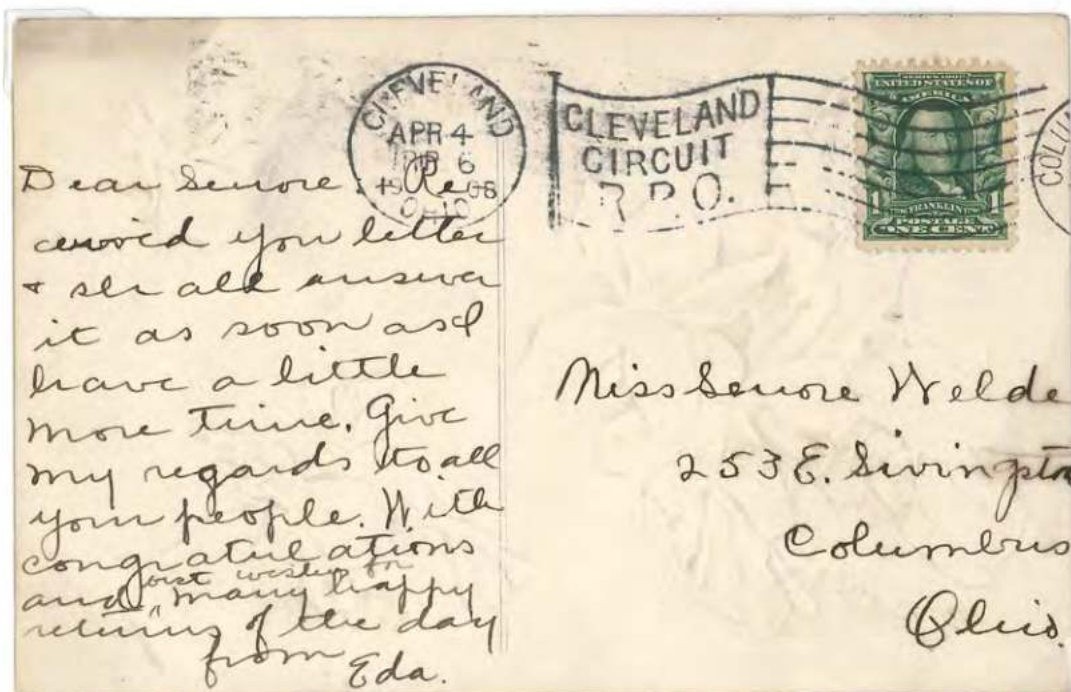 CLEVELAND
APR 4
6
1906
OHIO
CLEVELAND
CIRCUIT
R.P.O.
SERIES 1902
UNITED STATES OF
AMERICA
1 FRANKLIN 1
POSTAGE
ONE CENT
COLU
Dear Lenore. Re
ceived you letter
& shall answer
it as soon as I
have a little
more time. Give
my regards to all
your people. With
congratulations
and best wishes for many happy
returns of the day
from
Eda.
Miss Lenore Welde
253 E. Livington
Columbus
Ohio.